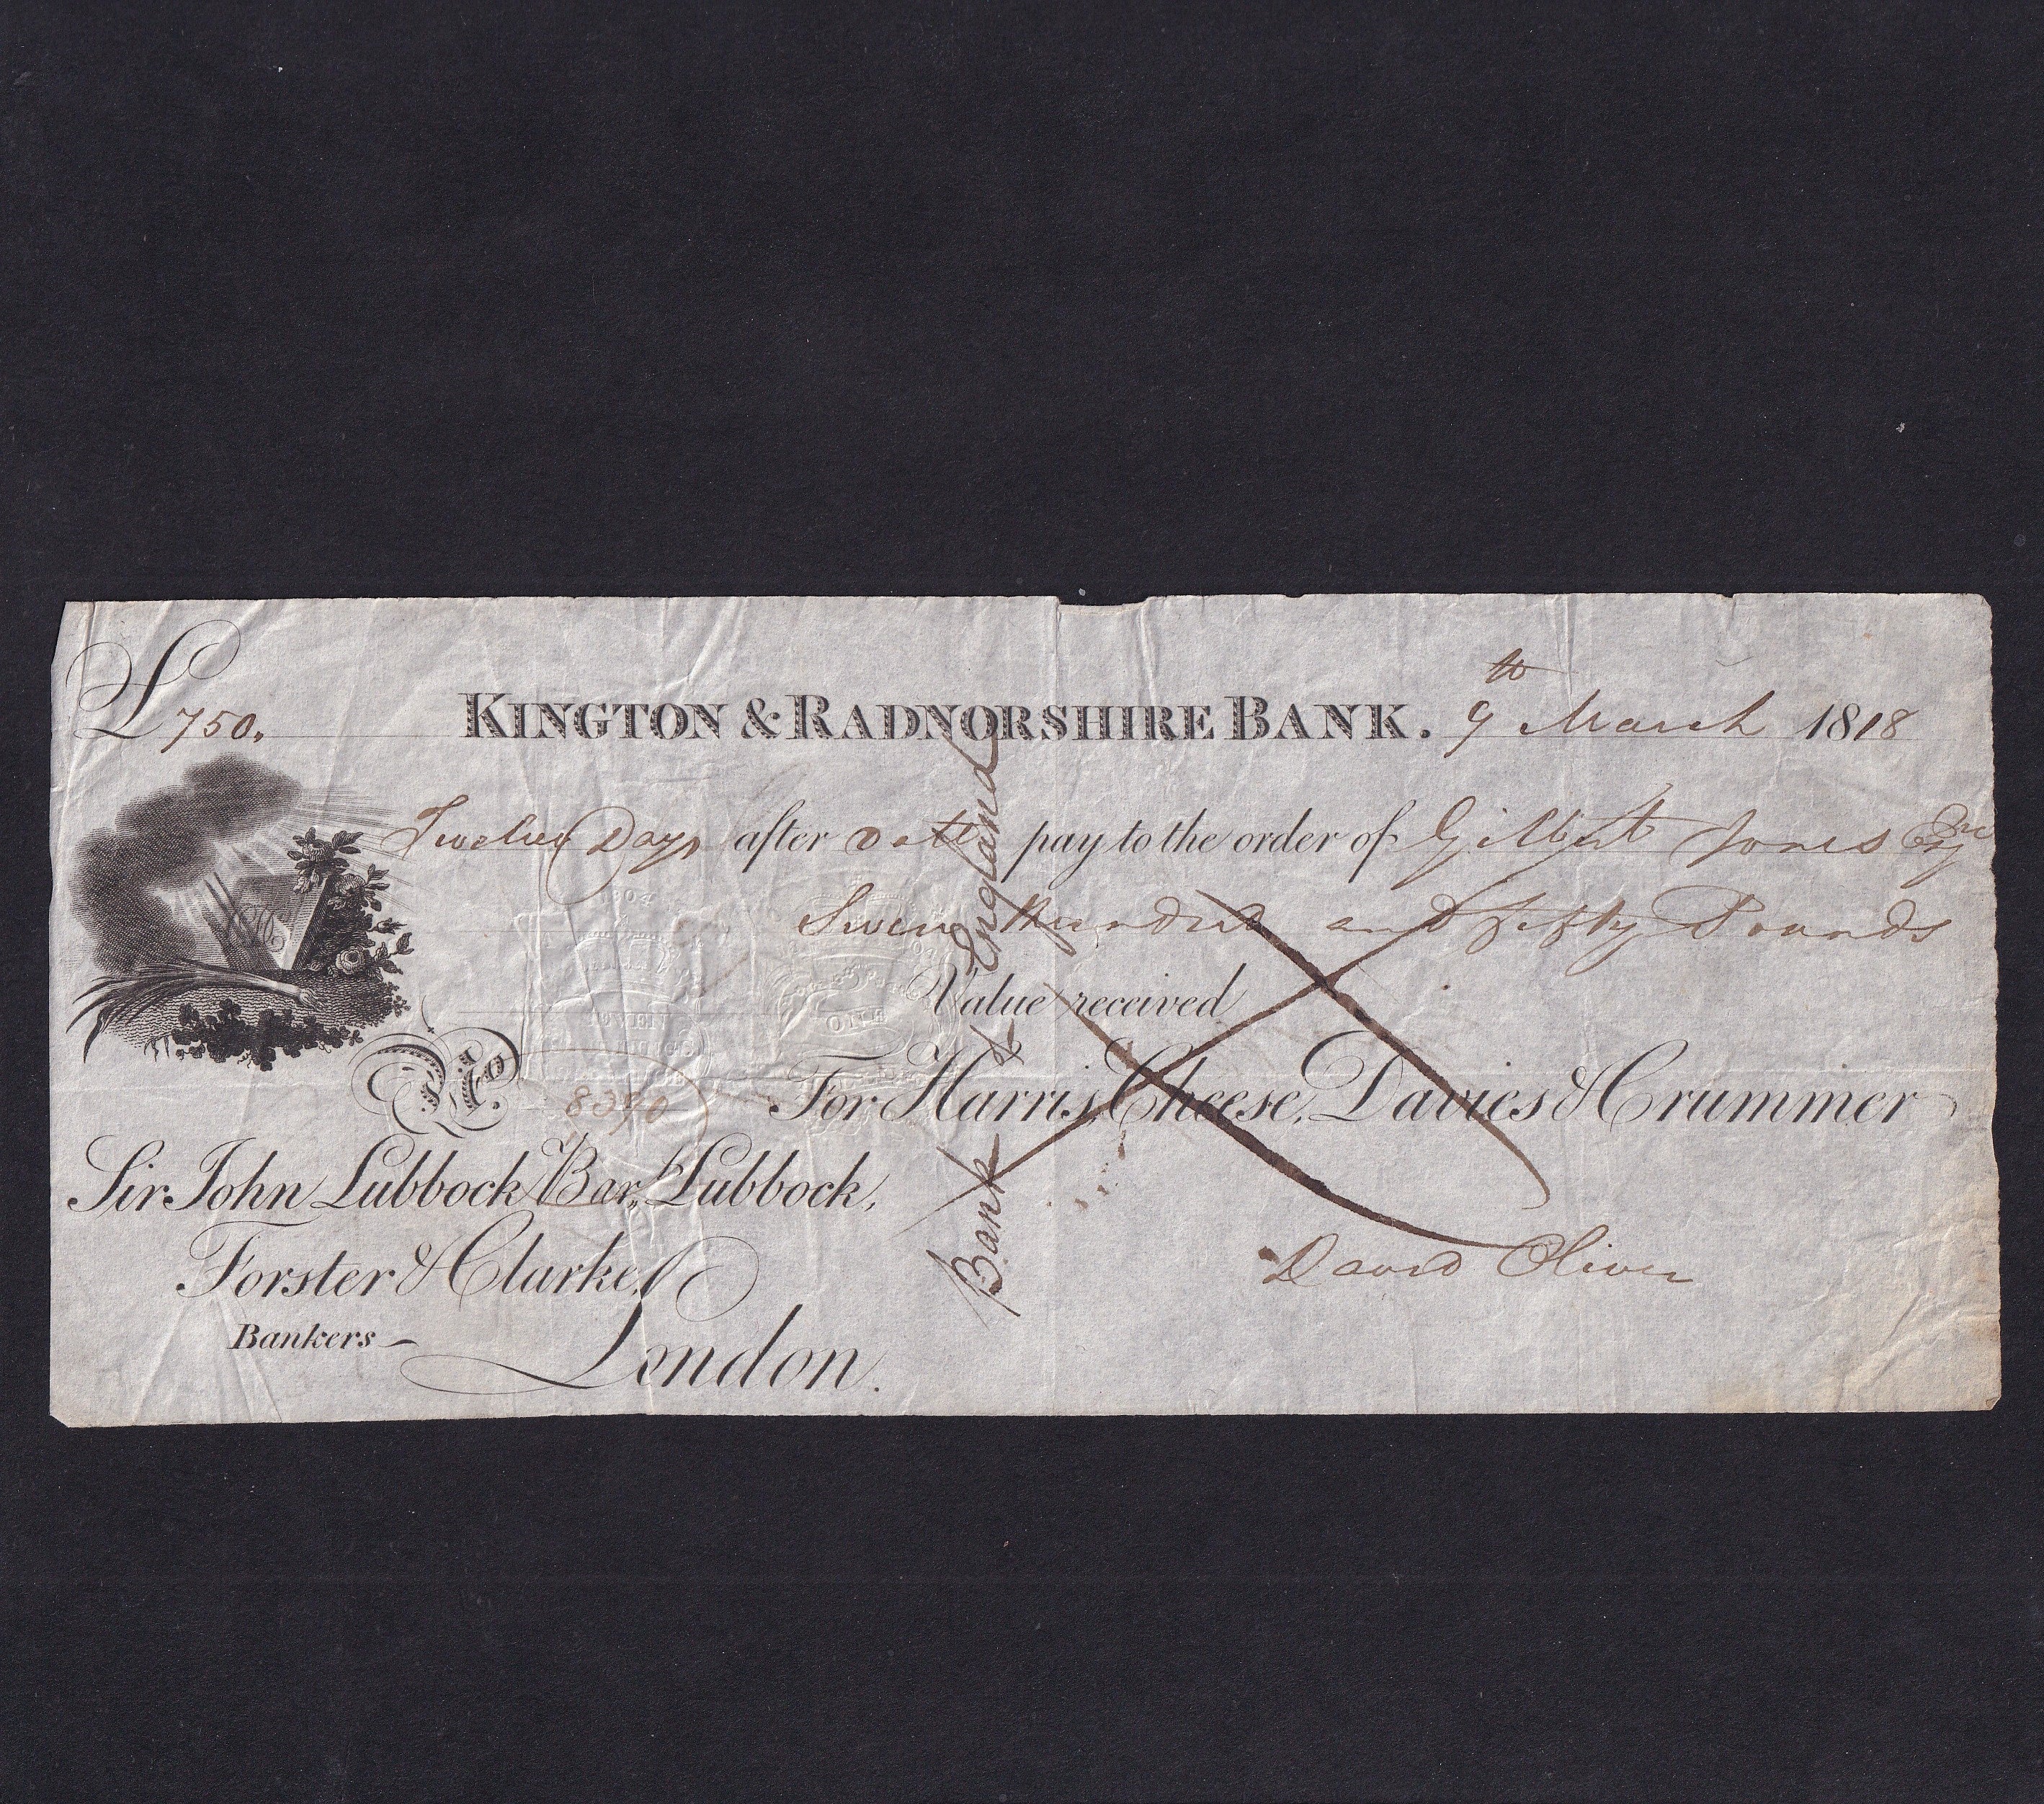 £750,, KINGTON & RADNORSHIRE BANK. 9th March 1818
Twelve Days after date pay to the order of Gilbert Jones Esqre
Seven Hundred and fifty Pounds
Value received
No. For Harris, Cheese, Davies & Crummer
Sir John Lubbock Bart. Lubbock,
Forster & Clarke,
David Oliver
Bankers London.
Bank of England
ONE